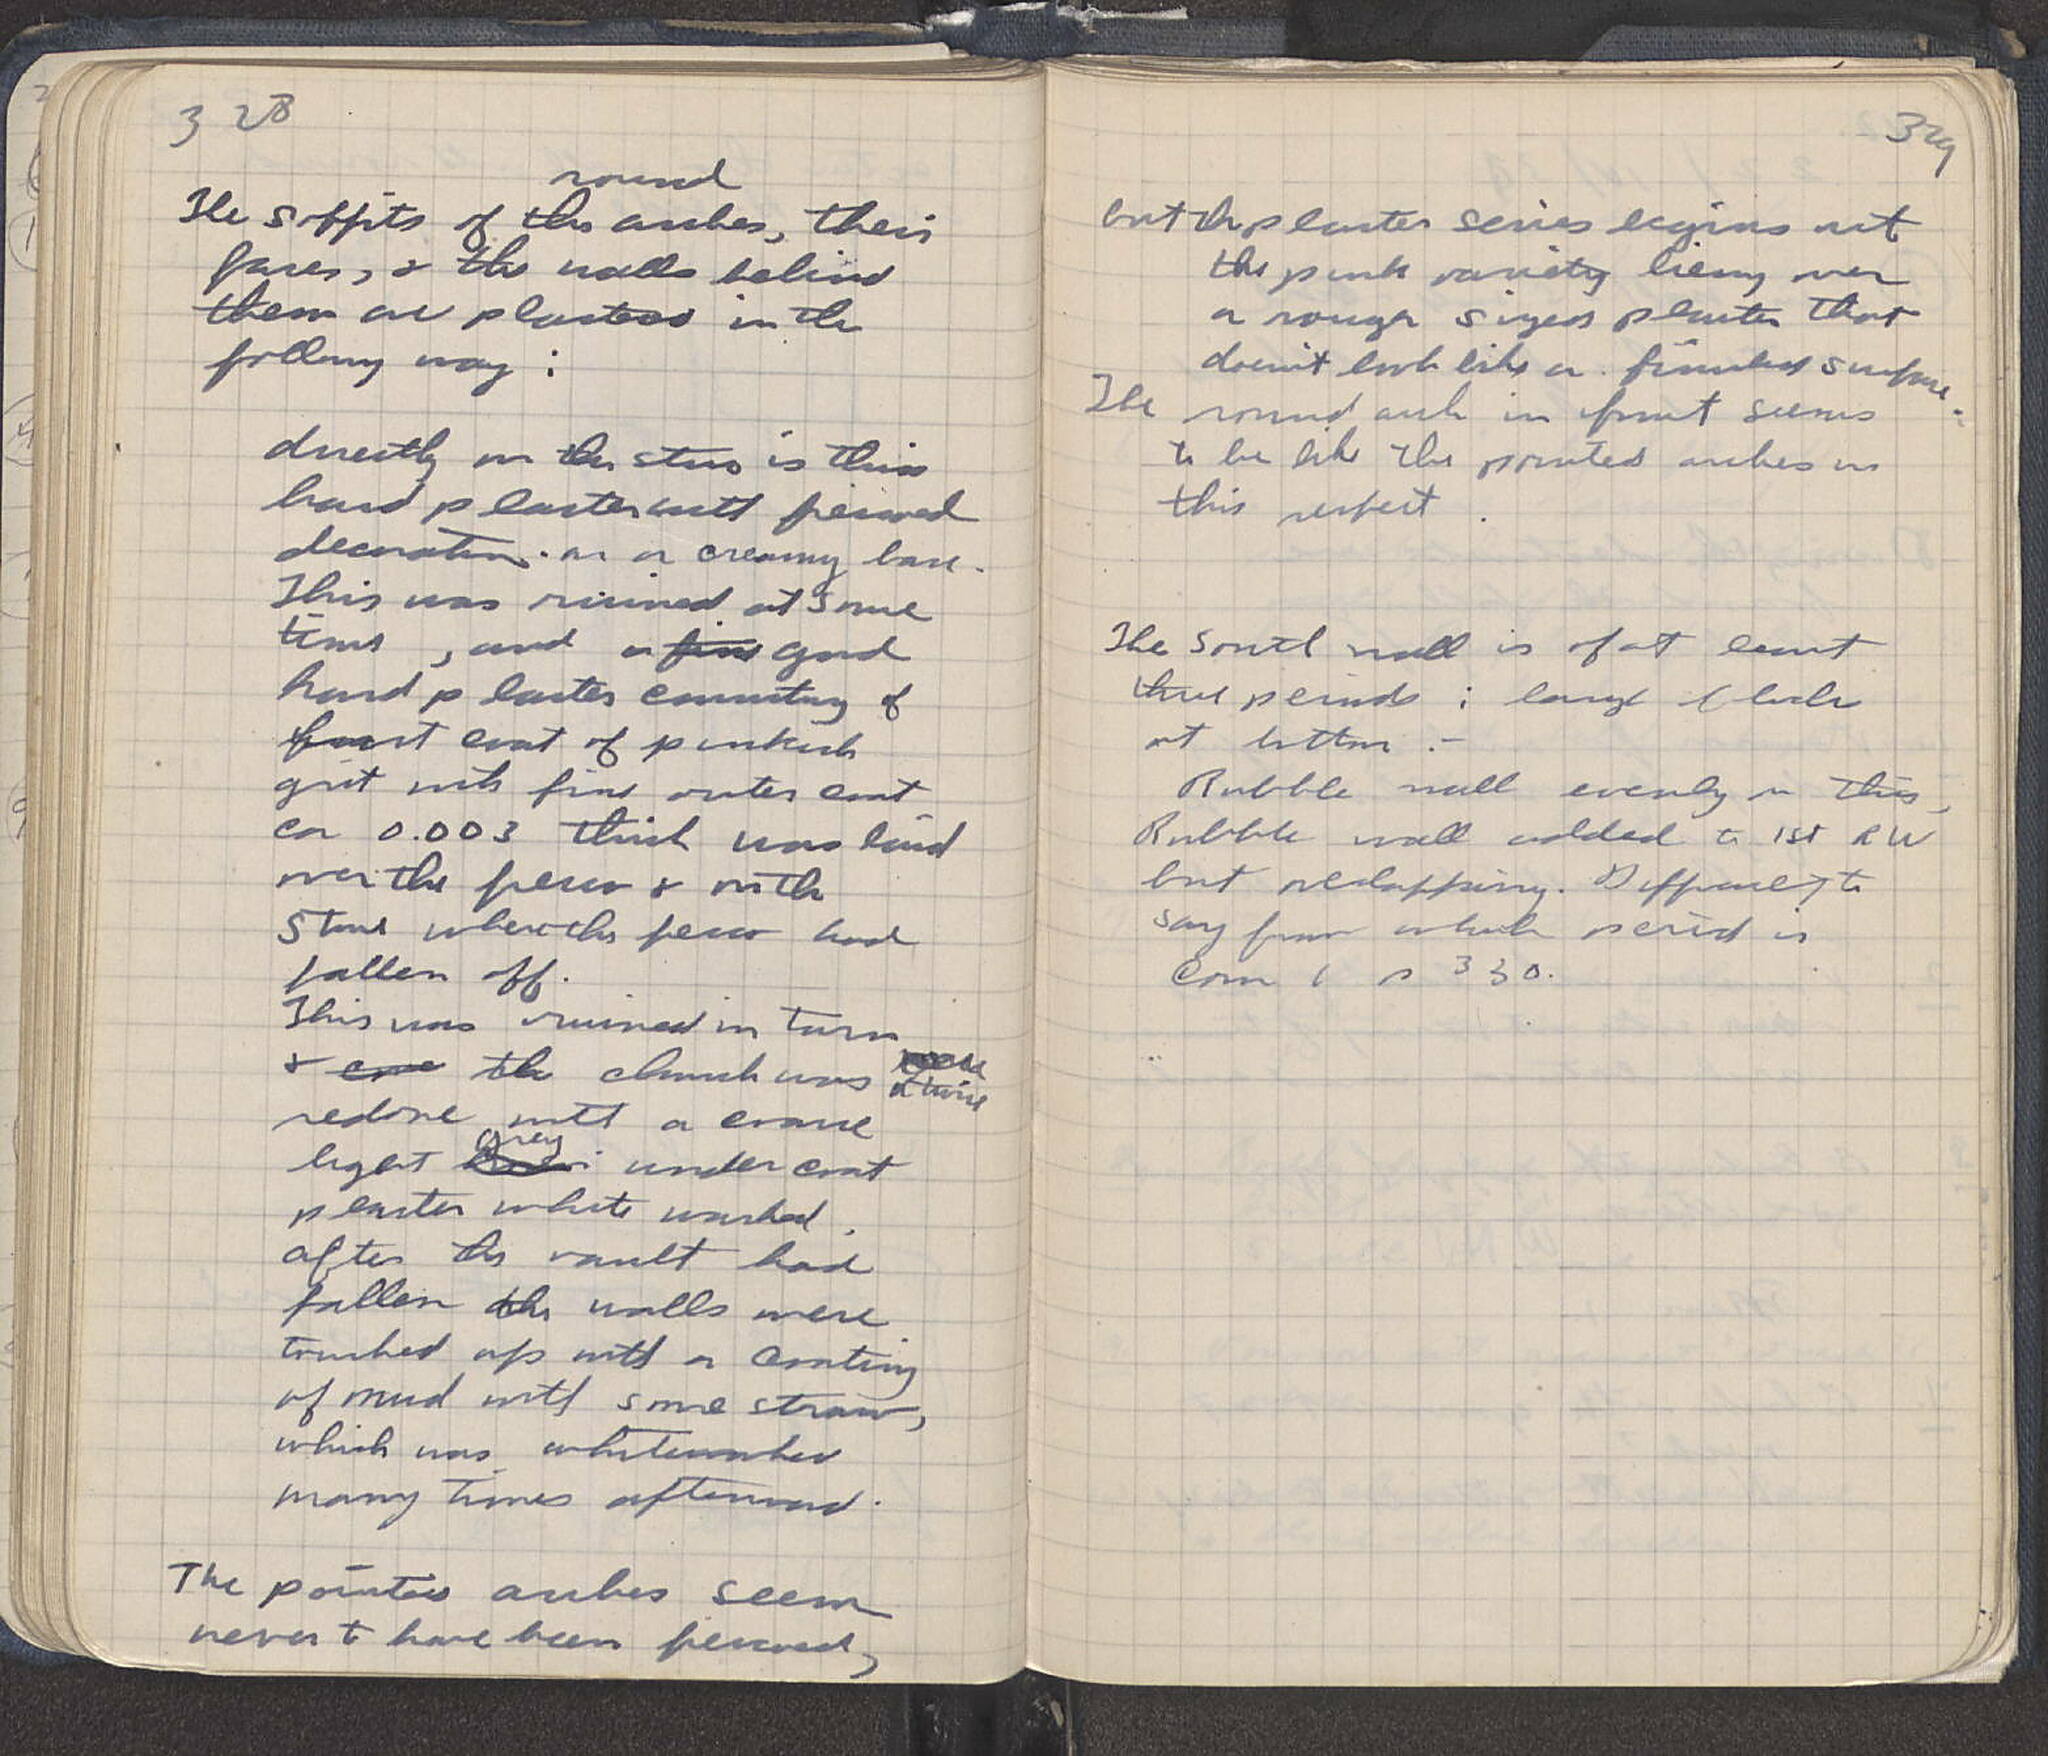 328
round
The soffits of the arches, their
faces, & the walls behind
them are plastered in the
following way :
directly on the stone is thin
hard plaster with frescoed
decoration on a creamy base.
This was ruined at some
time, and a fine good
hard plaster consisting of
first coat of pinkish
grit with fine outer coat
ca 0.003 thick was laid
over the fresco & on the
stone where the fresco had
fallen off.
This was ruined in turn
& the church was twice
redone with a coarse
grey
light under coat
plaster white washed.
after the vault had
fallen the walls were
touched up with a coating
of mud with some straw,
which was whitewashed
many times afterward.
The pointed arches seem
never to have been frescoed,
329
but the plaster series begins with
the pink variety lieing over
a rough sized plaster that
doesn't look like a finished surface.
The round arch in front seems
to be like the pointed arches in
this respect.
The South wall is of at least
three periods : large blocks
at bottom.-
Rubble wall evenly on this,
Rubble wall added to 1st RW
but overlapping. Difficult to
say from which period is
Corn 1 p 330.